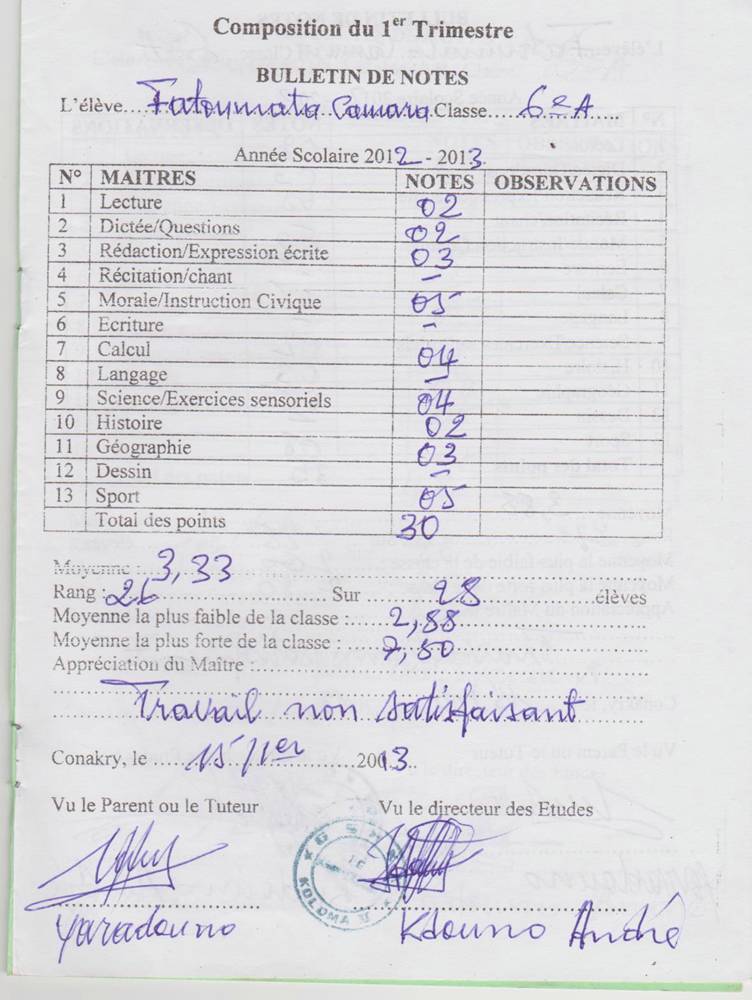 Composition du 1er Trimestre
BULLETIN DE NOTES
L'élève....Fatoumata Camara.Classe.....6e A.....
Année Scolaire 2012 - 2013
N° MAITRES NOTES OBSERVATIONS
1 Lecture 02
2 Dictée/Questions 02
3 Rédaction/Expression écrite 03
4 Récitation/chant –
5 Morale/Instruction Civique 05
6 Ecriture –
7 Calcul 04
8 Langage –
9 Science/Exercices sensoriels 04
10 Histoire 02
11 Géographie 03
12 Dessin –
13 Sport 05
Total des points 30
Moyenne : 3,33
Rang : 26 Sur 28 élèves
Moyenne la plus faible de la classe : 2,88
Moyenne la plus forte de la classe : 7,50
Appréciation du Maître :
Travail non satisfaisant
Conakry, le 15/1er 2013
Vu le Parent ou le Tuteur Vu le directeur des Etudes
G S
KOLOMA
Yaradouno Kdouno André